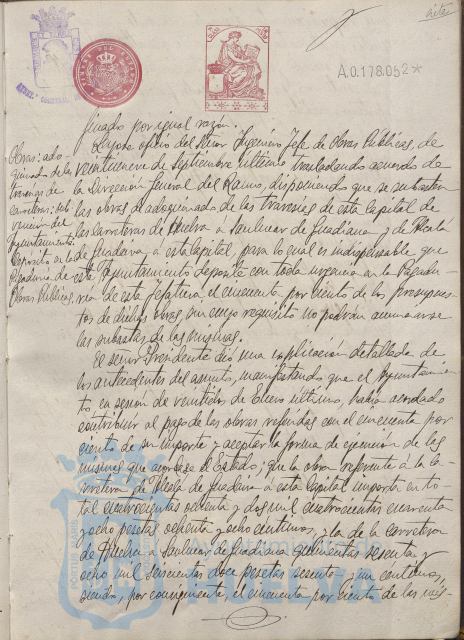 A.0.178.052*
ficado por igual razón.
Leyose oficio del Señor Ingeniero Jefe de Obras Públicas, de
veintinueve de Septiembre último trasladando acuerdo de
la Dirección General del Ramo, disponiendo que se subasten
las obras de adoquinado de las travesías de esta Capital de
las carreteras de Huelva a Sanlucar de Guadiana y de Alcalá
de Guadaira á esta Capital, para lo cual es indispensable que
este Ayuntamiento deposite con toda urgencia en la Pagadu-
ría de esta Jefatura el cincuenta por ciento de los presupues-
tos de dichas obras, sin cuyo requisito no podrán anunciarse
las subastas de las mismas.
El señor Presidente dió una explicación detallada de
los antecedentes del asunto, manifestando que el Ayuntamien-
to, en sesión de veintidos de Enero último, había acordado
contribuir al pago de las obras referidas con el cincuenta por
ciento de su importe y aceptar la forma de ejecución de las
mismas que acordase el Estado; que la obra referente á la ca-
rretera de Alcalá de Guadaira á esta Capital importa en to-
tal cuatrocientas ochenta y dos mil cuatrocientas cuarenta
y ocho pesetas ochenta y ocho centimos, y la de la carretera
de Huelva a Sanlucar de Guadiana quinientas sesenta y
ocho mil seiscientas doce pesetas sesenta y un centimos,
siendo, por consiguiente, el cincuenta por ciento de las mis-
Obras: ado-
quinado de las
travesías de
carreteras: sub
vención del
Ayuntamiento:
Depósito en la
Pagaduría de
Obras Públicas.
Ayuntamiento de
HUELVA